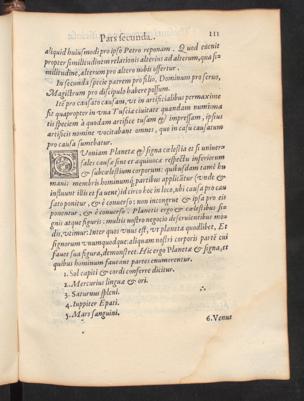 Pars secunda. 111
aliquid huiusmodi pro ipso Petro reponam. Quod euenit
propter similitudinem relationis alterius ad alterum, qua si-
militudine, alterum pro altero nobis offertur.
In secunda specie patrem pro filio, Dominum pro seruo,
Magistrum pro discipulo habere possum.
Ité pro causato causam, vt in artificialibus permaxime
fit quapropter in vna Tusciæ ciuitate quandam numisma
tis speciem à quodam artifice cusam & impressam, ipsius
artificis nomine vocitabant omnes, quo in casu causatum
pro causa sumebatur.
QVoniam Planetæ & signa cælestia et si vniuer
sales causæ sint et æquiuocæ respectu inferiorum
& subcælestium corporum: quibusdam tamé hu
manis membris hominumq́ partibus applicâtur (vnde &
influunt illis et fauent) id circo hoc in loco, vbi causa pro cau
sato ponitur, & è conuerso: non incongrue & ipsa pro eis
ponentur, & è conuerso. Planetis ergo & cælestibus si-
gnis atque figuris: multis nostro negocio deseruientibus mo-
dis, vtimur: Inter quos vnus est, vt planeta quodlibet, Et
signorum vnumquodque aliquam nostri corporis parté cui
fauet sua figura, demonstret. Hic ergo Planetæ & signa, et
quibus hominum faueant partes enumerentur.
1. Sol capiti & cordi conferre dicitur.
2. Mercurius linguæ & ori.
3. Saturnus spleni.
4. Iuppiter Epati.
5. Mars sanguini. 6. Venus